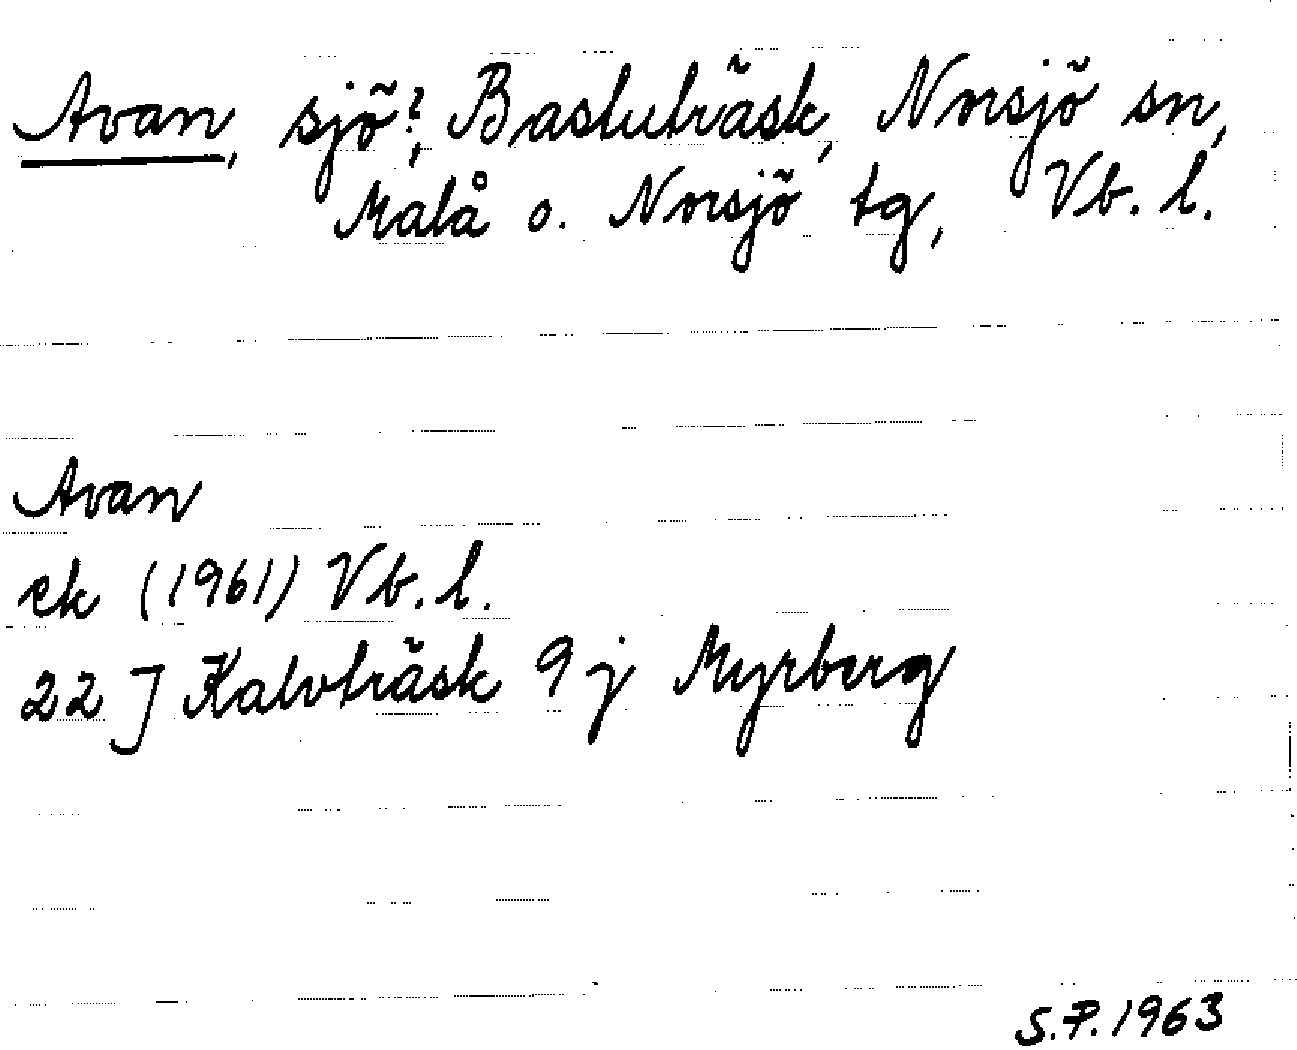 Avan, sjö?, Bastuträsk, Norsjö sn,
Malå o. Norsjö tg, Vb. l.
Avan
ek (1961) Vb. l.
22 J Kalvträsk 9 j Myrberg
S.P. 1963